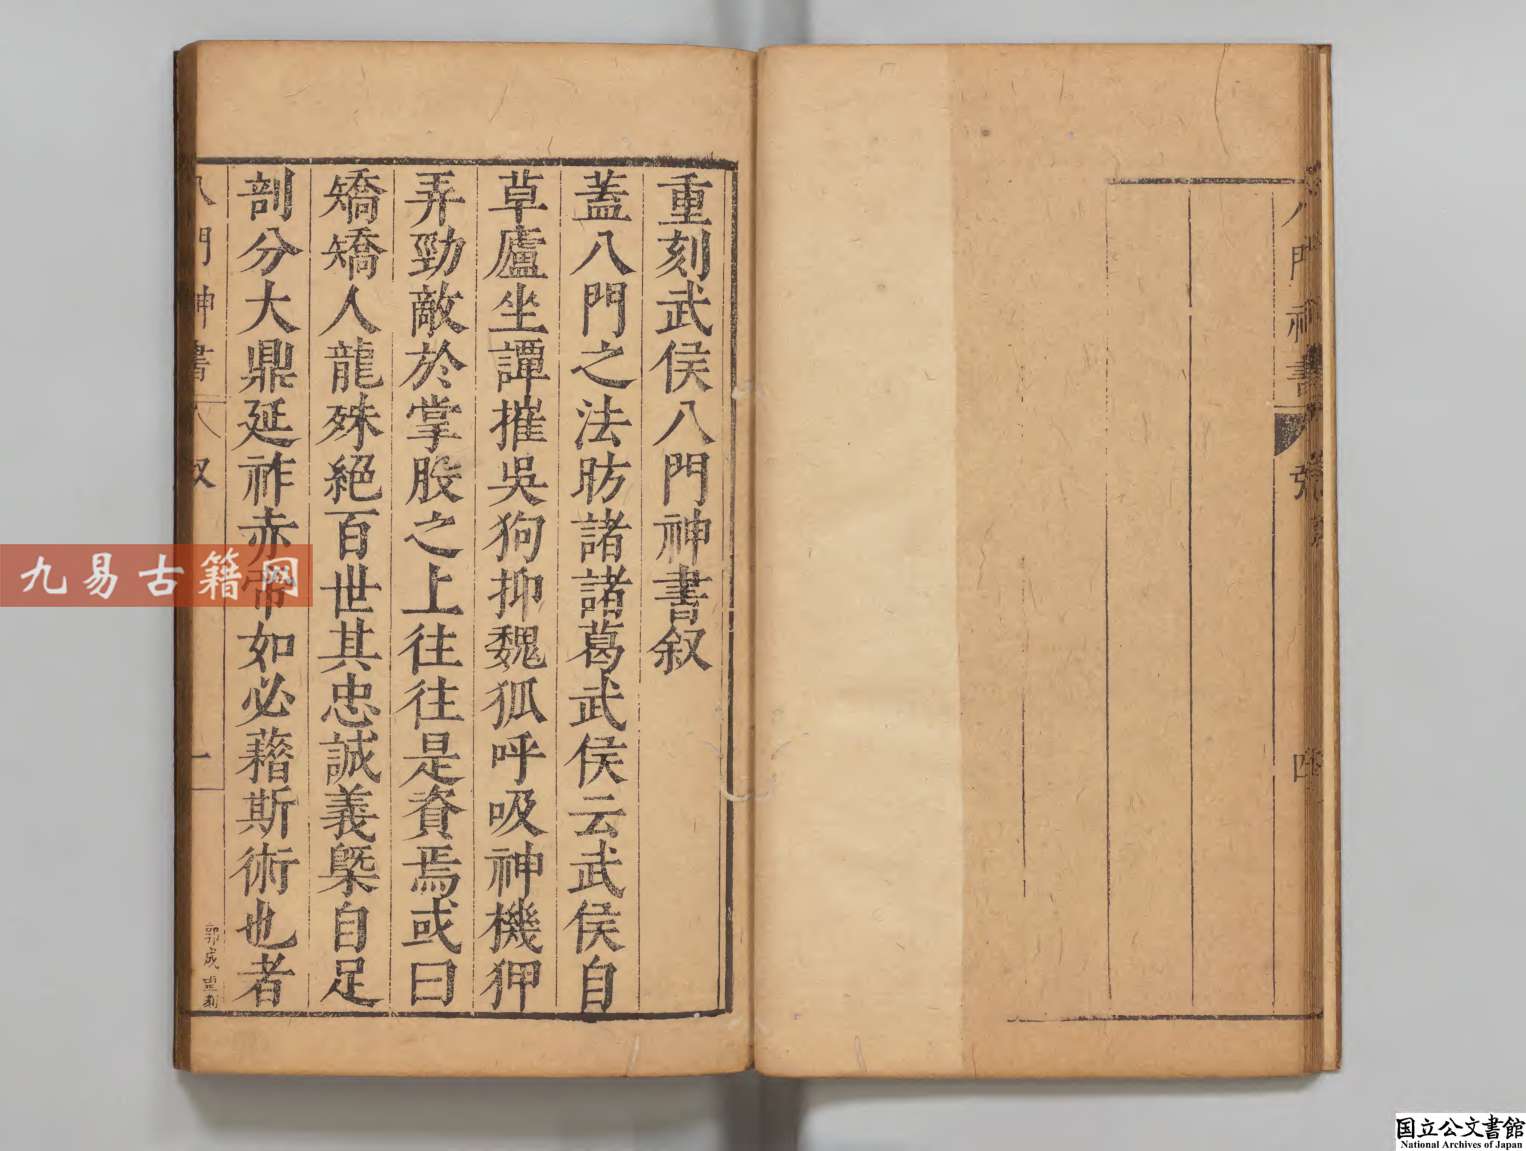 重刻武侯八門神書叙
蓋八門之法昉諸諸葛武侯云武侯自
草廬坐譚摧吳狗抑魏狐呼吸神機狎
弄勁敵於掌股之上往往是資焉或曰
矯矯人龍殊絕百世其忠誠義槩自足
剖分大鼎延祚赤帝如必藉斯術也者
八門神書 叙 一
八門神書
四
九易古籍网
国立公文書館
National Archives of Japan